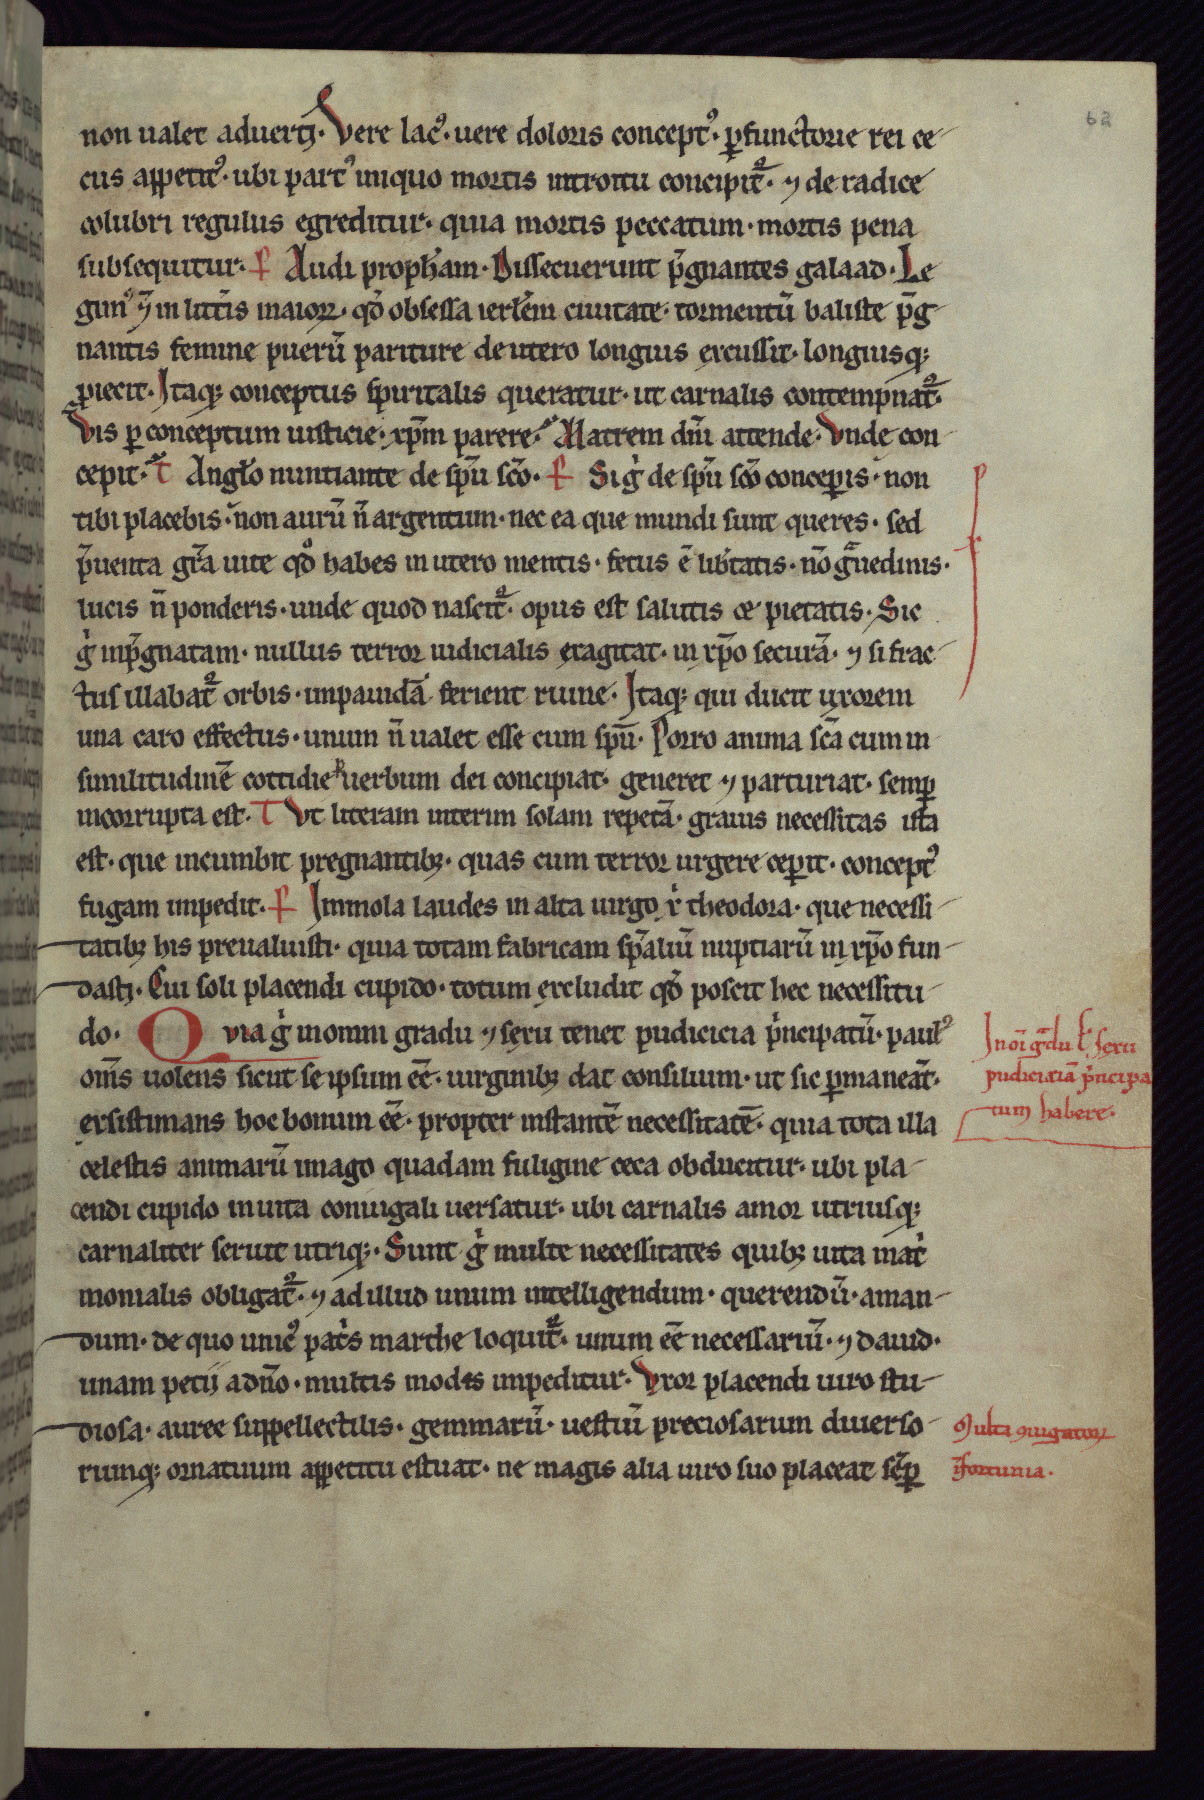 62
non ualet aduerti. Vere lacꝰ. uere doloris conceptꝰ. ꝑfunctorie rei ce-
cus appetitꝰ. ubi partꝰ iniquo mortis introitu concipit᷑. ⁊ de radice
colubri regulus egreditur. quia mortis peccatum. mortis pena
subsequitur. P Audi prophetam. Dissecuerunt p̄gnantes galaad. Le
gimꝰ in litt̄is maioꝝ. qd̄ obsessa ierl̄em ciuitate. tormentū baliste p̄g-
nantis femine puerū pariture de utero longius excussit. longiusqꝫ
ꝓiecit. Itaqꝫ conceptus spiritalis queratur. ut carnalis contempnat᷑.
Vis ꝑ conceptum iusticie. xp̄m parere. Matrem dn̄i attende. Vnde con-
cepit. T Angl̄o nuntiante de sp̄u sc̄o. P Si gͥ de sp̄u sc̄o conceperis. non
tibi placebis. non aurū n̄ argentum. nec ea que mundi sunt queres. sed
p̄uenta gr̄a uite qd̄ habes in utero mentis. fetus ē lib̄tatis. nō gͣuedinis.
lucis n̄ ponderis. unde quod nascit᷑. opus est salutis & pietatis. Sic
gͥ inp̄gnatam. nullus terror iudicialis exagitat. in xp̄o securā. ⁊ si frac-
tus illabat᷑ orbis. impauidā ferient ruine. Itaqꝫ qui ducit uxorem
una caro effectus. unum n̄ ualet esse cum sp̄u. Porro anima sc̄a cum in
similitudinē cottidie uerbum dei concipiat. generet ⁊ parturiat. semꝑ
incorrupta est. T Vt literam interim solam repetā. grauis necessitas ista
est. que incumbit pregnantibꝫ. quas cum terror urgere ceperit. conceptꝰ
fugam impedit. P Immola laudes in alta uirgo xͥ theodora. que necessi-
tatibꝫ his preualuisti. quia totam fabricam sp̄aliū nuptiarū in xp̄o fun-
dasti. Cui soli placendi cupido. totum excludit qd̄ poscit hec necessitu-
do. Quia gͥ in omni gradu ⁊ sexu tenet pudicicia pͥncipatū. paulꝰ
om̄s uolens sicut se ipsum eē. uirginibꝫ dat consilium. ut sic ꝑmaneāt.
existimans hoc bonum eē. propter instantē necessitatē. quia tota illa
celestis animarū imago quadam fuligine ceca obducitur. ubi pla-
cendi cupido in uita coniugali uersatur. ubi carnalis amor utriusqꝫ
carnaliter seruit utriqꝫ. Sunt gͥ multe necessitates quibꝫ uita matͥ
monialis obligat᷑. ⁊ ad illud unum intelligendum. querendū. aman-
dum. de quo unicꝰ patͥs marthe loquit᷑. unum eē necessariū. ⁊ dauid.
unam petii a dn̄o. multis modis impeditur. Vxor placendi uiro stu-
diosa. auree suppellectilis. gemmarū. uestiū preciosarum diuerso-
rumqꝫ ornatuum appetitu estuat. ne magis alia uiro suo placeat semꝑ
In oī gͣdu ł sexu
pudicitiā pͥncipa
tum habere.
Multa ꝯiugatoꝝ
īfortunia.